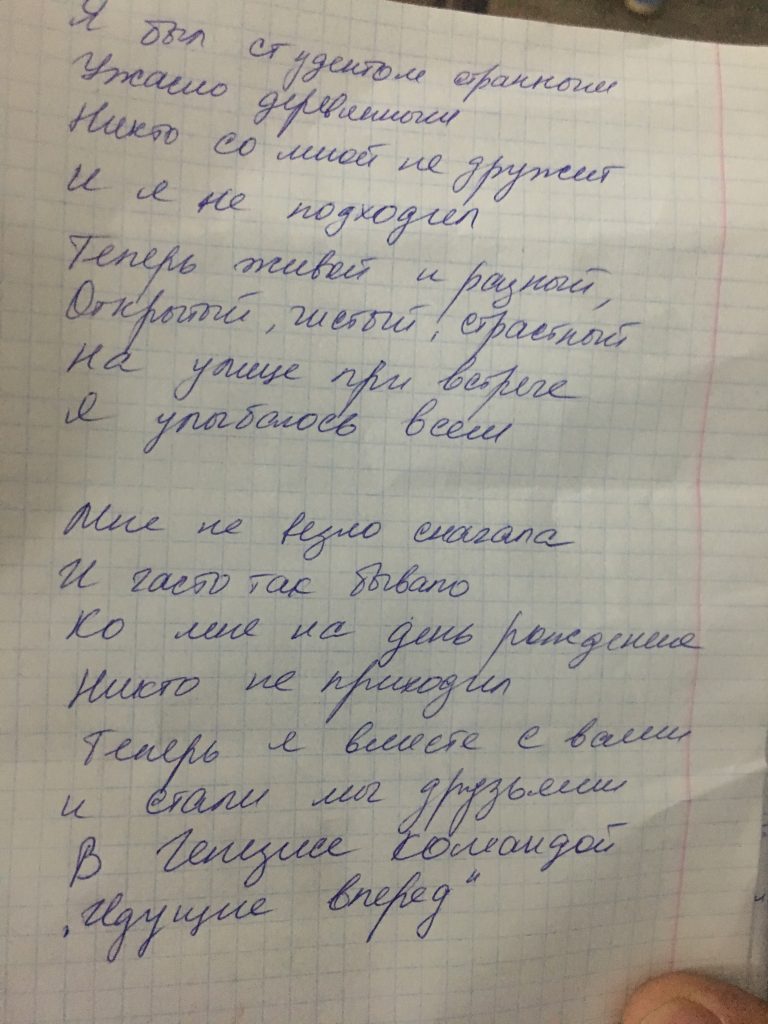 Я был студентом странным
Ужасно деревянным
Никто со мной не дружит
И я не подходил
Теперь живой и разный,
Открытый, чистый, страстный
На улице при встрече
Я улыбаюсь всем
Мне не везло сначала
И часто так бывало
Ко мне на день рождение
Никто не приходил
Теперь я вместе с вами
и стали мы друзьями
В Генезисе командой
„Идущие вперед"